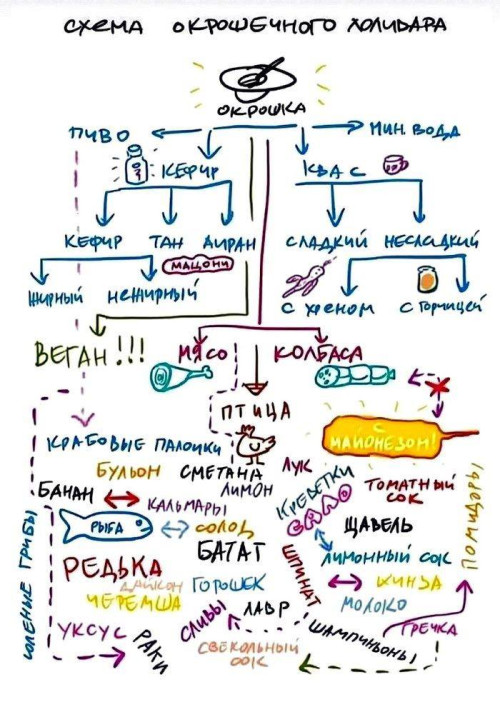 СХЕМА ОКРОШЕЧНОГО ХОЛИВАРА
ОКРОШКА
ПИВО
МИН. ВОДА
КЕФИР
КВАС
КЕФИР ТАН АЙРАН СЛАДКИЙ НЕСЛАДКИЙ
МАЦОНИ
ЖИРНЫЙ НЕЖИРНЫЙ
С ХРЕНОМ С ГОРЧИЦЕЙ
ВЕГАН!!! МЯСО КОЛБАСА
ПТИЦА
С МАЙОНЕЗОМ!
КРАБОВЫЕ ПАЛОЧКИ
БУЛЬОН СМЕТАНА ЛУК
БАНАН
КАЛЬМАРЫ
ЛИМОН
КРЕВЕТКИ
САЛО
ТОМАТНЫЙ СОК
РЫБА СОЛОД
ЩАВЕЛЬ
ПОМИДОРЫ
РЕДЬКА БАТАТ
ЛИМОННЫЙ СОК
ДАЙКОН ГОРОШЕК
ШПИНАТ
КИНЗА
ЧЕРЕМША
СЛИВЫ
ЛАВР
МОЛОКО
СОЛЕНЫЕ ГРИБЫ
УКСУС РАКИ
СВЕКОЛЬНЫЙ СОК
ШАМПИНЬОНЫ
ГРЕЧКА